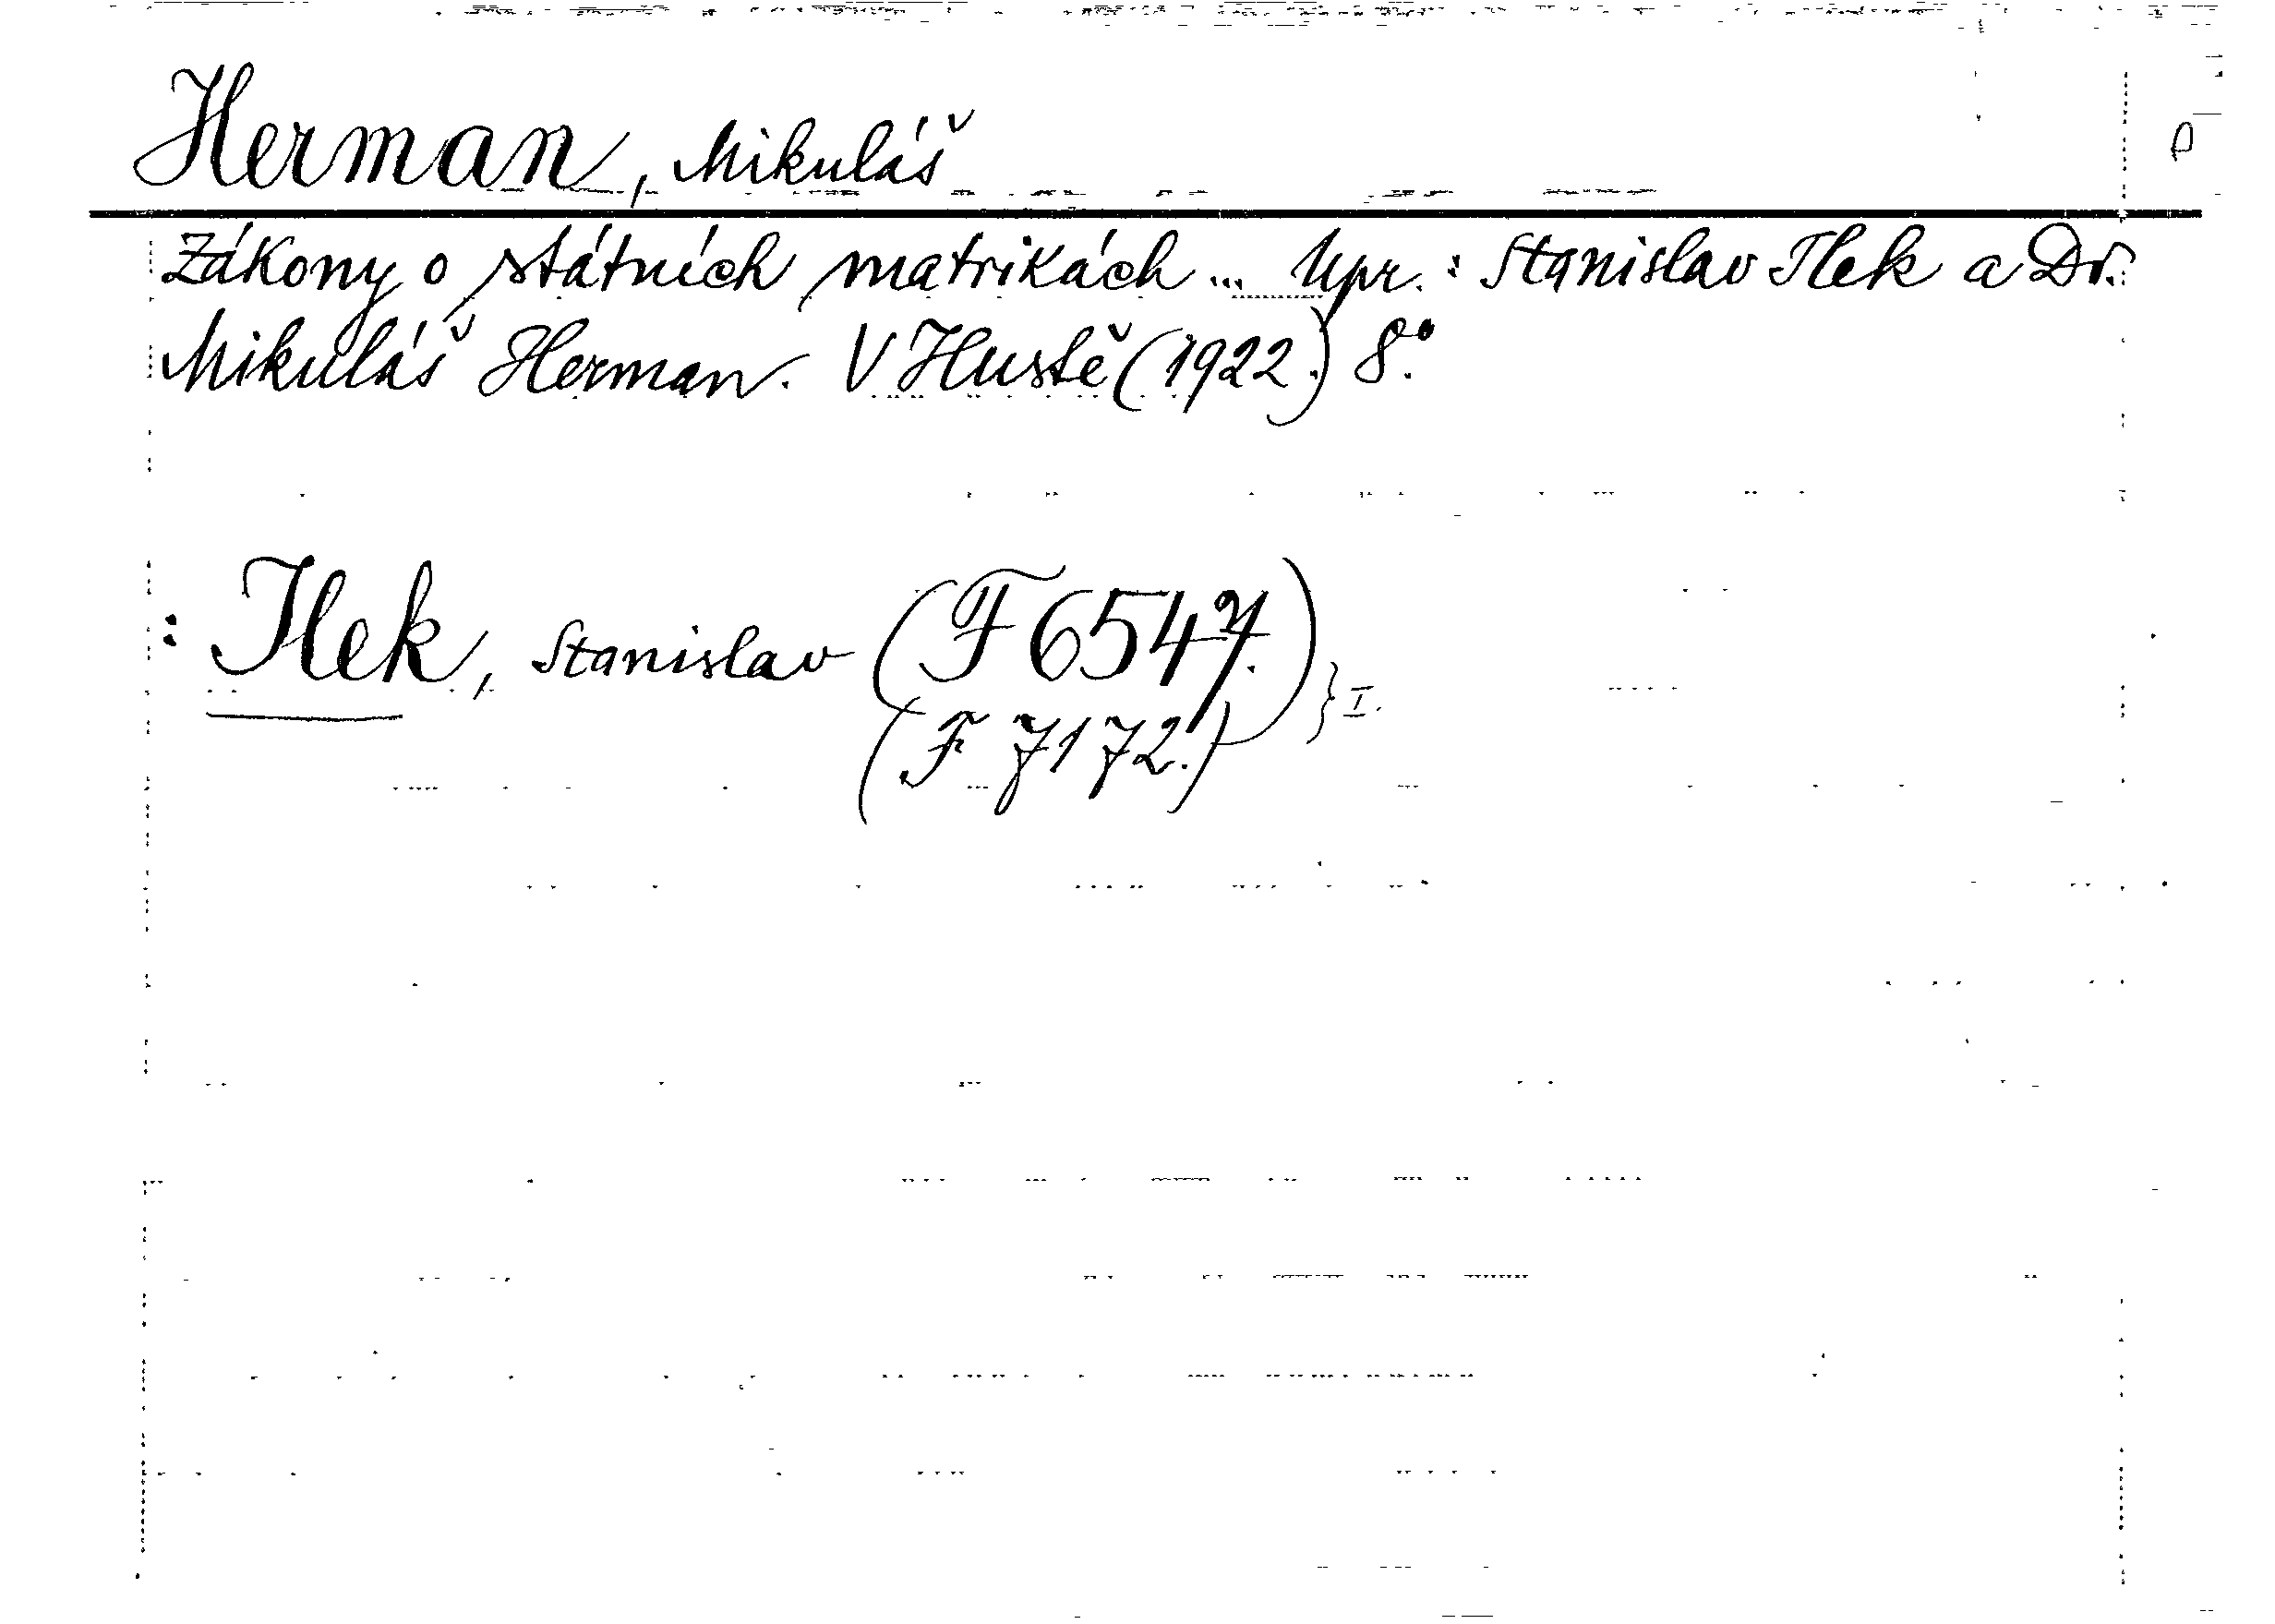 Herman, Mikuláš
Zákony o státních matrikách ... Upr.: Stanislav Ilek a Dr.
Mikuláš Herman. V Hustě (1922.) 8°.
: Ilek, Stanislav (F 6547.)
(F 7172.) } I.